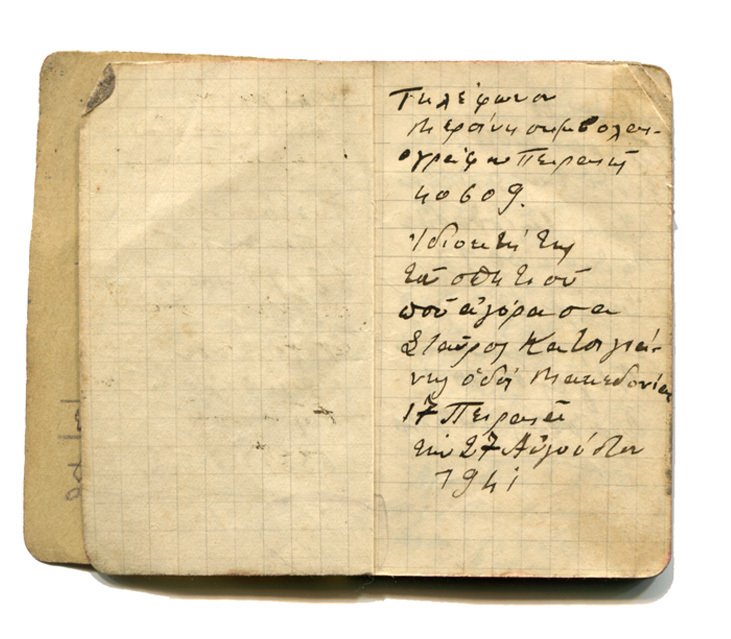 Τηλέφωνον
Μερσίνη συμβολαι-
ογράφου Πειραιῶς
40609.
Ἰδιοκτήτης
τοῦ σπητιοῦ
ποῦ ἀγόρασα
Σταῦρος Κατσιγιάν-
νης ὁδός Μακεδονίας
17 Πειραιᾶ
τὴν 27 Αὐγούστου
1941